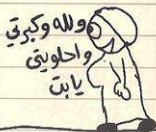 ولله وكبرتي
واحلويتي
يابت